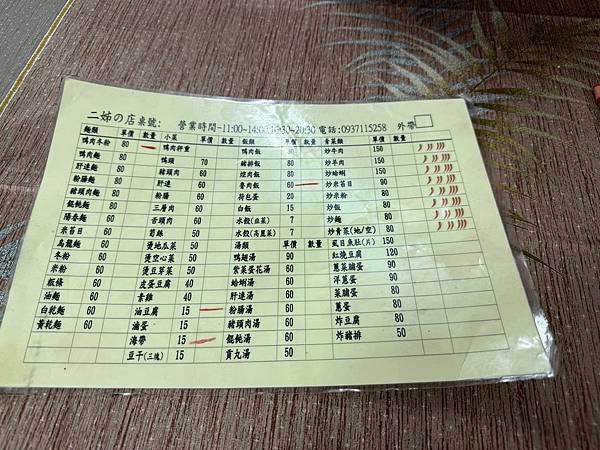 二姊の店桌號: 營業時間-11:00~14:00,16:30~20:30 電話:0937115258 外帶
麵類 單價 數量 小菜 單價 數量 飯類 單價 數量 青菜類 單價 數量
鴨肉冬粉 80 鴨肉秤重 鴨肉飯 80 炒牛肉 150
鴨肉麵 80 鴨頭 70 豬排飯 80 炒羊肉 150
肝連麵 80 豬頭肉 60 焢肉飯 80 炒蛤蜊 150
粉腸麵 80 肝連 60 魯肉飯 60 炒米苔目 90
豬頭肉麵 80 粉腸 60 荷包蛋 20 炒米粉 90
餛飩麵 80 三層肉 60 白飯 15 炒飯 90
陽春麵 60 舌頭肉 60 水餃(韭菜) 7 炒麵 90
米苔目 60 筍絲 50 水餃(高麗菜) 7 炒青菜(地/空) 80
烏龍麵 60 燙地瓜菜 50 湯類 單價 數量 虱目魚肚(片) 150
冬粉 60 燙空心菜 50 鴨翅湯 90 紅燒豆腐 120
米粉 60 燙豆芽菜 50 紫菜蛋花湯 60 蔥菜脯蛋 90
粄條 60 皮蛋豆腐 40 蛤蜊湯 60 洋蔥蛋 90
油麵 60 素雞 40 肝連湯 60 菜脯蛋 80
白乾麵 60 油豆腐 15 粉腸湯 60 蔥蛋 80
黃乾麵 60 滷蛋 15 豬頭肉湯 60 炸豆腐 80
海帶 15 餛飩湯 60 炸豬排 50
豆干(三塊) 15 貢丸湯 50